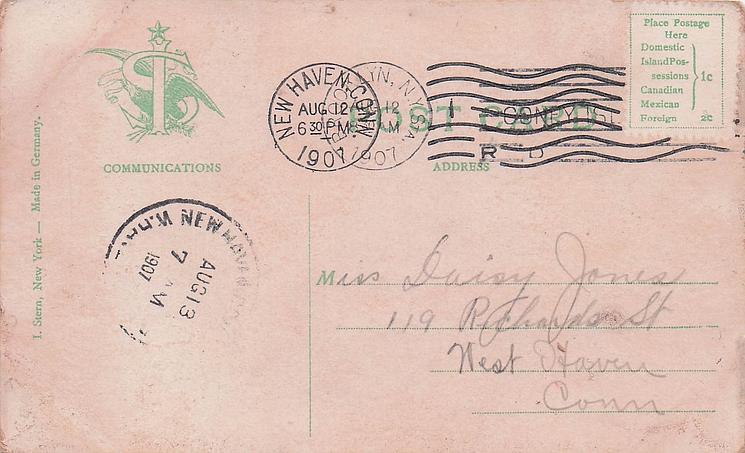 Place Postage
Here
Domestic
Island Pos-
sessions
Canadian
Mexican
1c
Foreign 2c
NEW HAVEN, CONN
AUG 12
6 30 PM
1907
N.Y.
12
AM
1907
POST CARD
COMMUNICATIONS
ADDRESS
I. Stern, New York — Made in Germany.
NEW HAVEN
AUG 13
7 AM
1907
Miss Daisy Jones
119 Richards St
West Haven
Conn